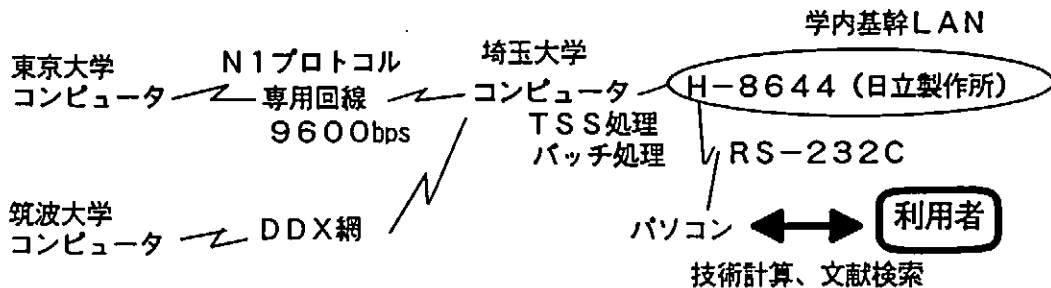 学内基幹LAN
東京大学
コンピュータ
N1プロトコル
専用回線
9600bps
埼玉大学
コンピュータ
TSS処理
バッチ処理
H-8644(日立製作所)
RS-232C
筑波大学
コンピュータ
DDX網
パソコン
利用者
技術計算、文献検索